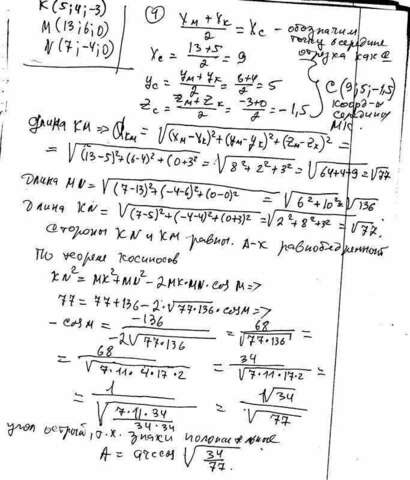 K(5;4;-3)
M(13;6;0)
N(7;-4;0)
④ (Xм + Xк)/2 = Xc - обозначим точку в середине отрезка как C
Xc = (13+5)/2 = 9
Yc = (Yм+Yк)/2 = (6+4)/2 = 5
Zc = (Zм+Zк)/2 = (-3+0)/2 = -1,5
C(9;5;-1,5) коорд-ы середины MK.
Длина KM => dкм = √(Xм-Xк)²+(Yм-Yк)²+(Zм-Zк)² =
= √(13-5)²+(6-4)²+(0+3)² = √8²+2²+3² = √64+4+9 = √77
Длина MN = √(7-13)²+(-4-6)²+(0-0)² = √6²+10² = √136
Длина KN = √(7-5)²+(-4-4)²+(0+3)² = √2²+8²+3² = √77.
Стороны KN и KM равны. Δ-к равнобедренный
По теореме косинусов
KN² = MK²+MN²-2MK·MN·cos M =>
77 = 77+136-2·√77·136·cos M =>
- cos M = -136/(-2√77·136) = 68/√77·136 =
= 68/√7·11·4·17·2 = 34/√7·11·17·2 =
= 1/√(7·11·34)/(34·34) = √34/√77
угол острый, т.к. знаки положительные
A = arccos √34/77.